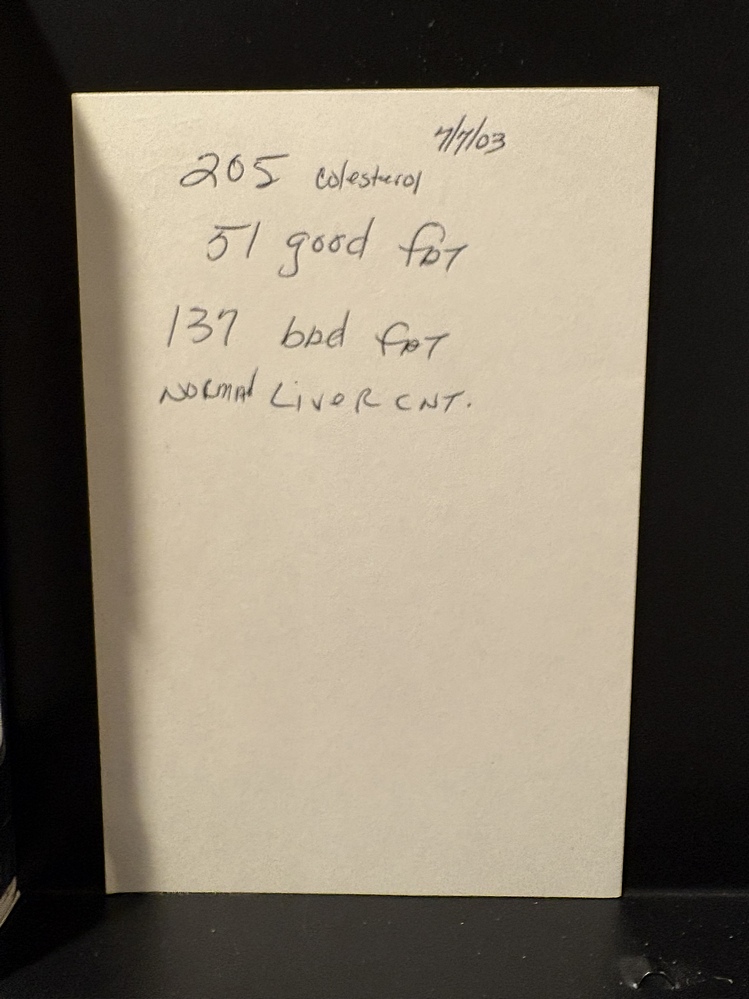 7/7/03
205 Colesterol
51 good fat
137 bad fat
Normal Liver CNT.